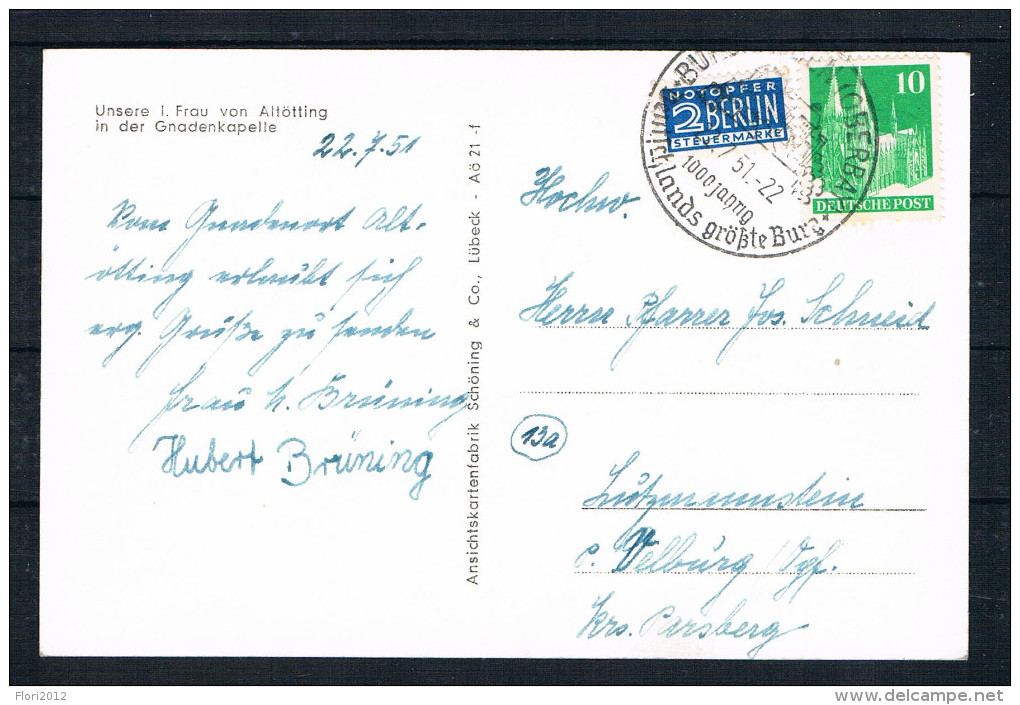 Unsere l. Frau von Altötting
in der Gnadenkapelle
22.7.51
Vom Gnadenort Alt-
ötting erlaubt sich
erg. Grüße zu senden
Frau H. Brüning
Hubert Brüning
Ansichtskartenfabrik Schöning & Co., Lübeck - Aö 21 -f
NOTOPFER
2 BERLIN
STEUERMARKE
10
DEUTSCHE POST
(OBERBAY
7 51.-22
1000jährig
größte Burg
Hochw.
Herrn Pfarrer Jos. Schmeid
13a
Lutzmannstein
p. Velburg/Opf.
Krs. Parsberg
Flori2012